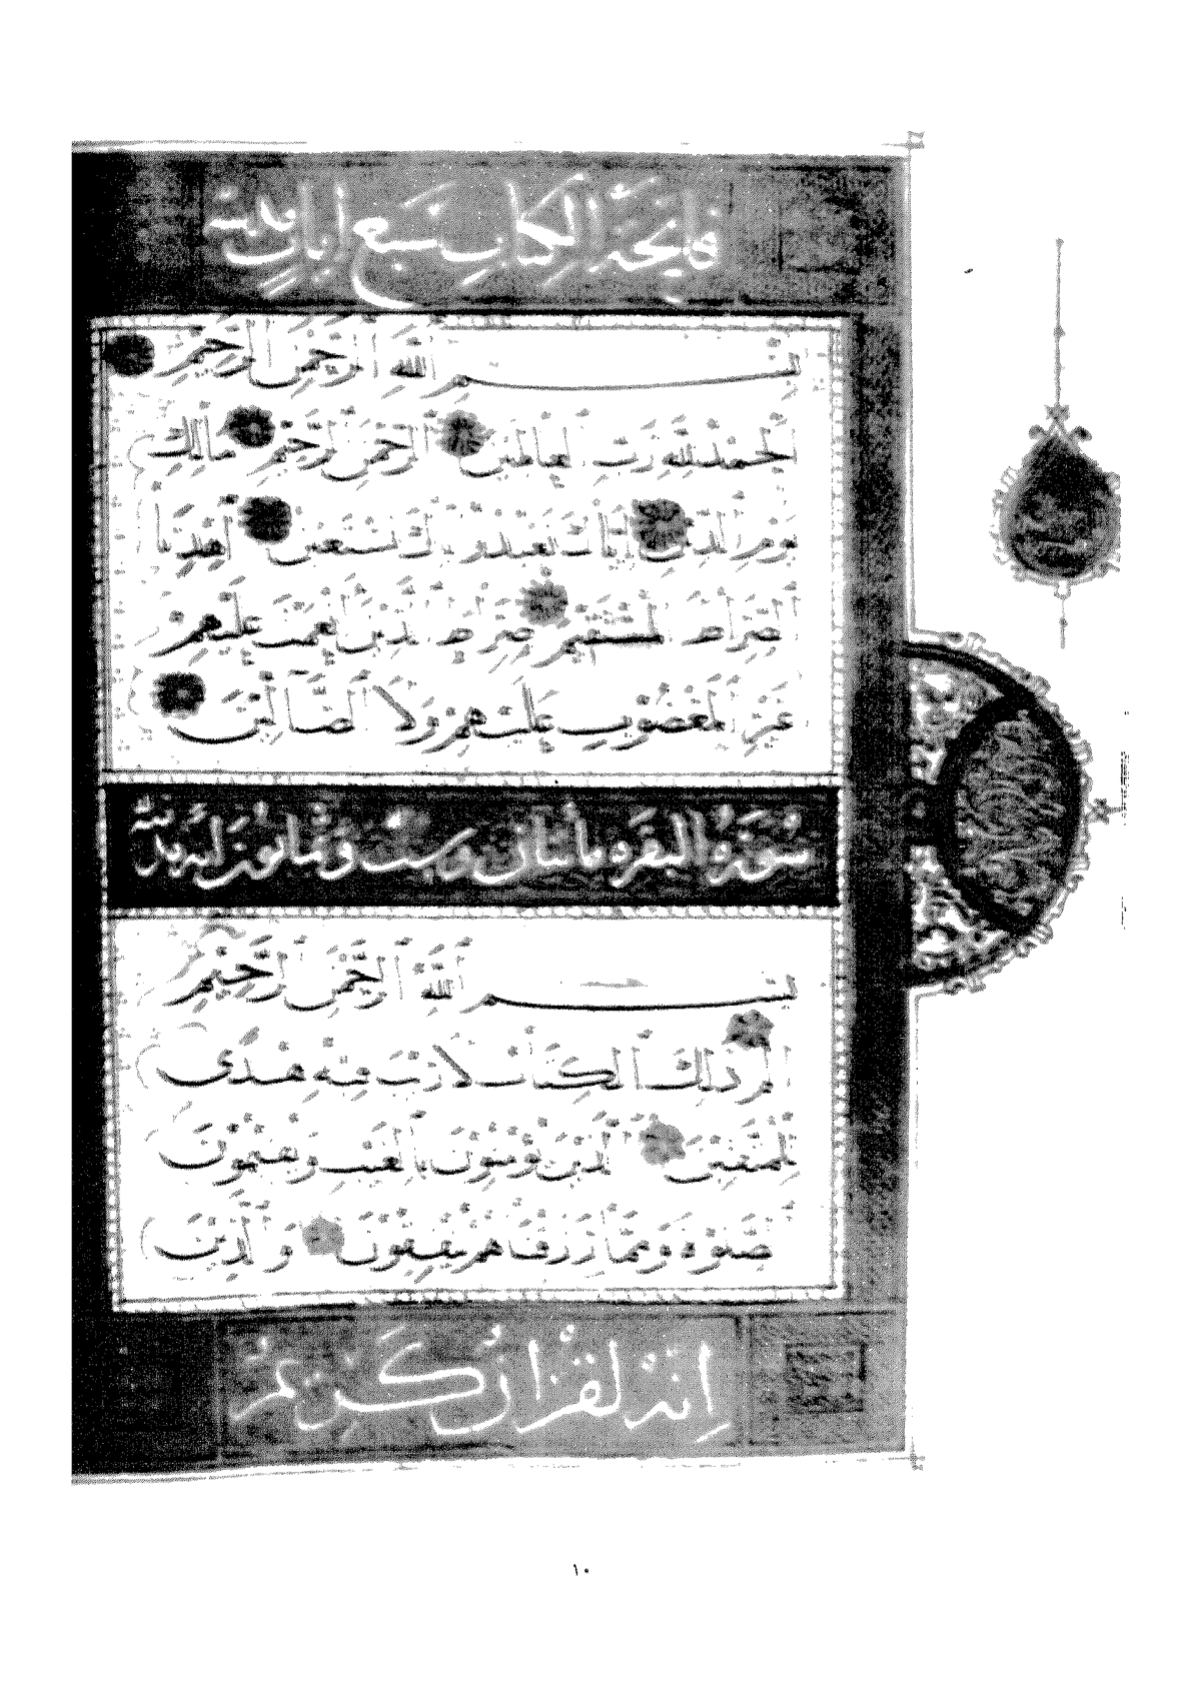 فاتحة الكتاب سبع آيات مدنية
بِسْمِ اللَّهِ الرَّحْمَنِ الرَّحِيمِ
اَلْحَمْدُ لِلَّهِ رَبِّ الْعَالَمِينَ الرَّحْمَنِ الرَّحِيمِ مَالِكِ
يَوْمِ الدِّينِ إِيَّاكَ نَعْبُدُ وَإِيَّاكَ نَسْتَعِينُ اِهْدِنَا
الصِّرَاطَ الْمُسْتَقِيمَ صِرَاطَ الَّذِينَ أَنْعَمْتَ عَلَيْهِمْ
غَيْرِ الْمَغْضُوبِ عَلَيْهِمْ وَلَا الضَّالِّينَ
سورة البقره مأيتان وست وثمانون آية
بِسْمِ اللَّهِ الرَّحْمَنِ الرَّحِيمِ
الم ذَلِكَ الْكِتَابُ لَا رَيْبَ فِيهِ هُدًى
لِلْمُتَّقِينَ الَّذِينَ يُؤْمِنُونَ بِالْغَيْبِ وَيُقِيمُونَ
الصَّلَوةَ وَمِمَّا رَزَقْنَاهُمْ يُنْفِقُونَ وَالَّذِينَ
اِنه لقرآن كريم
١٠